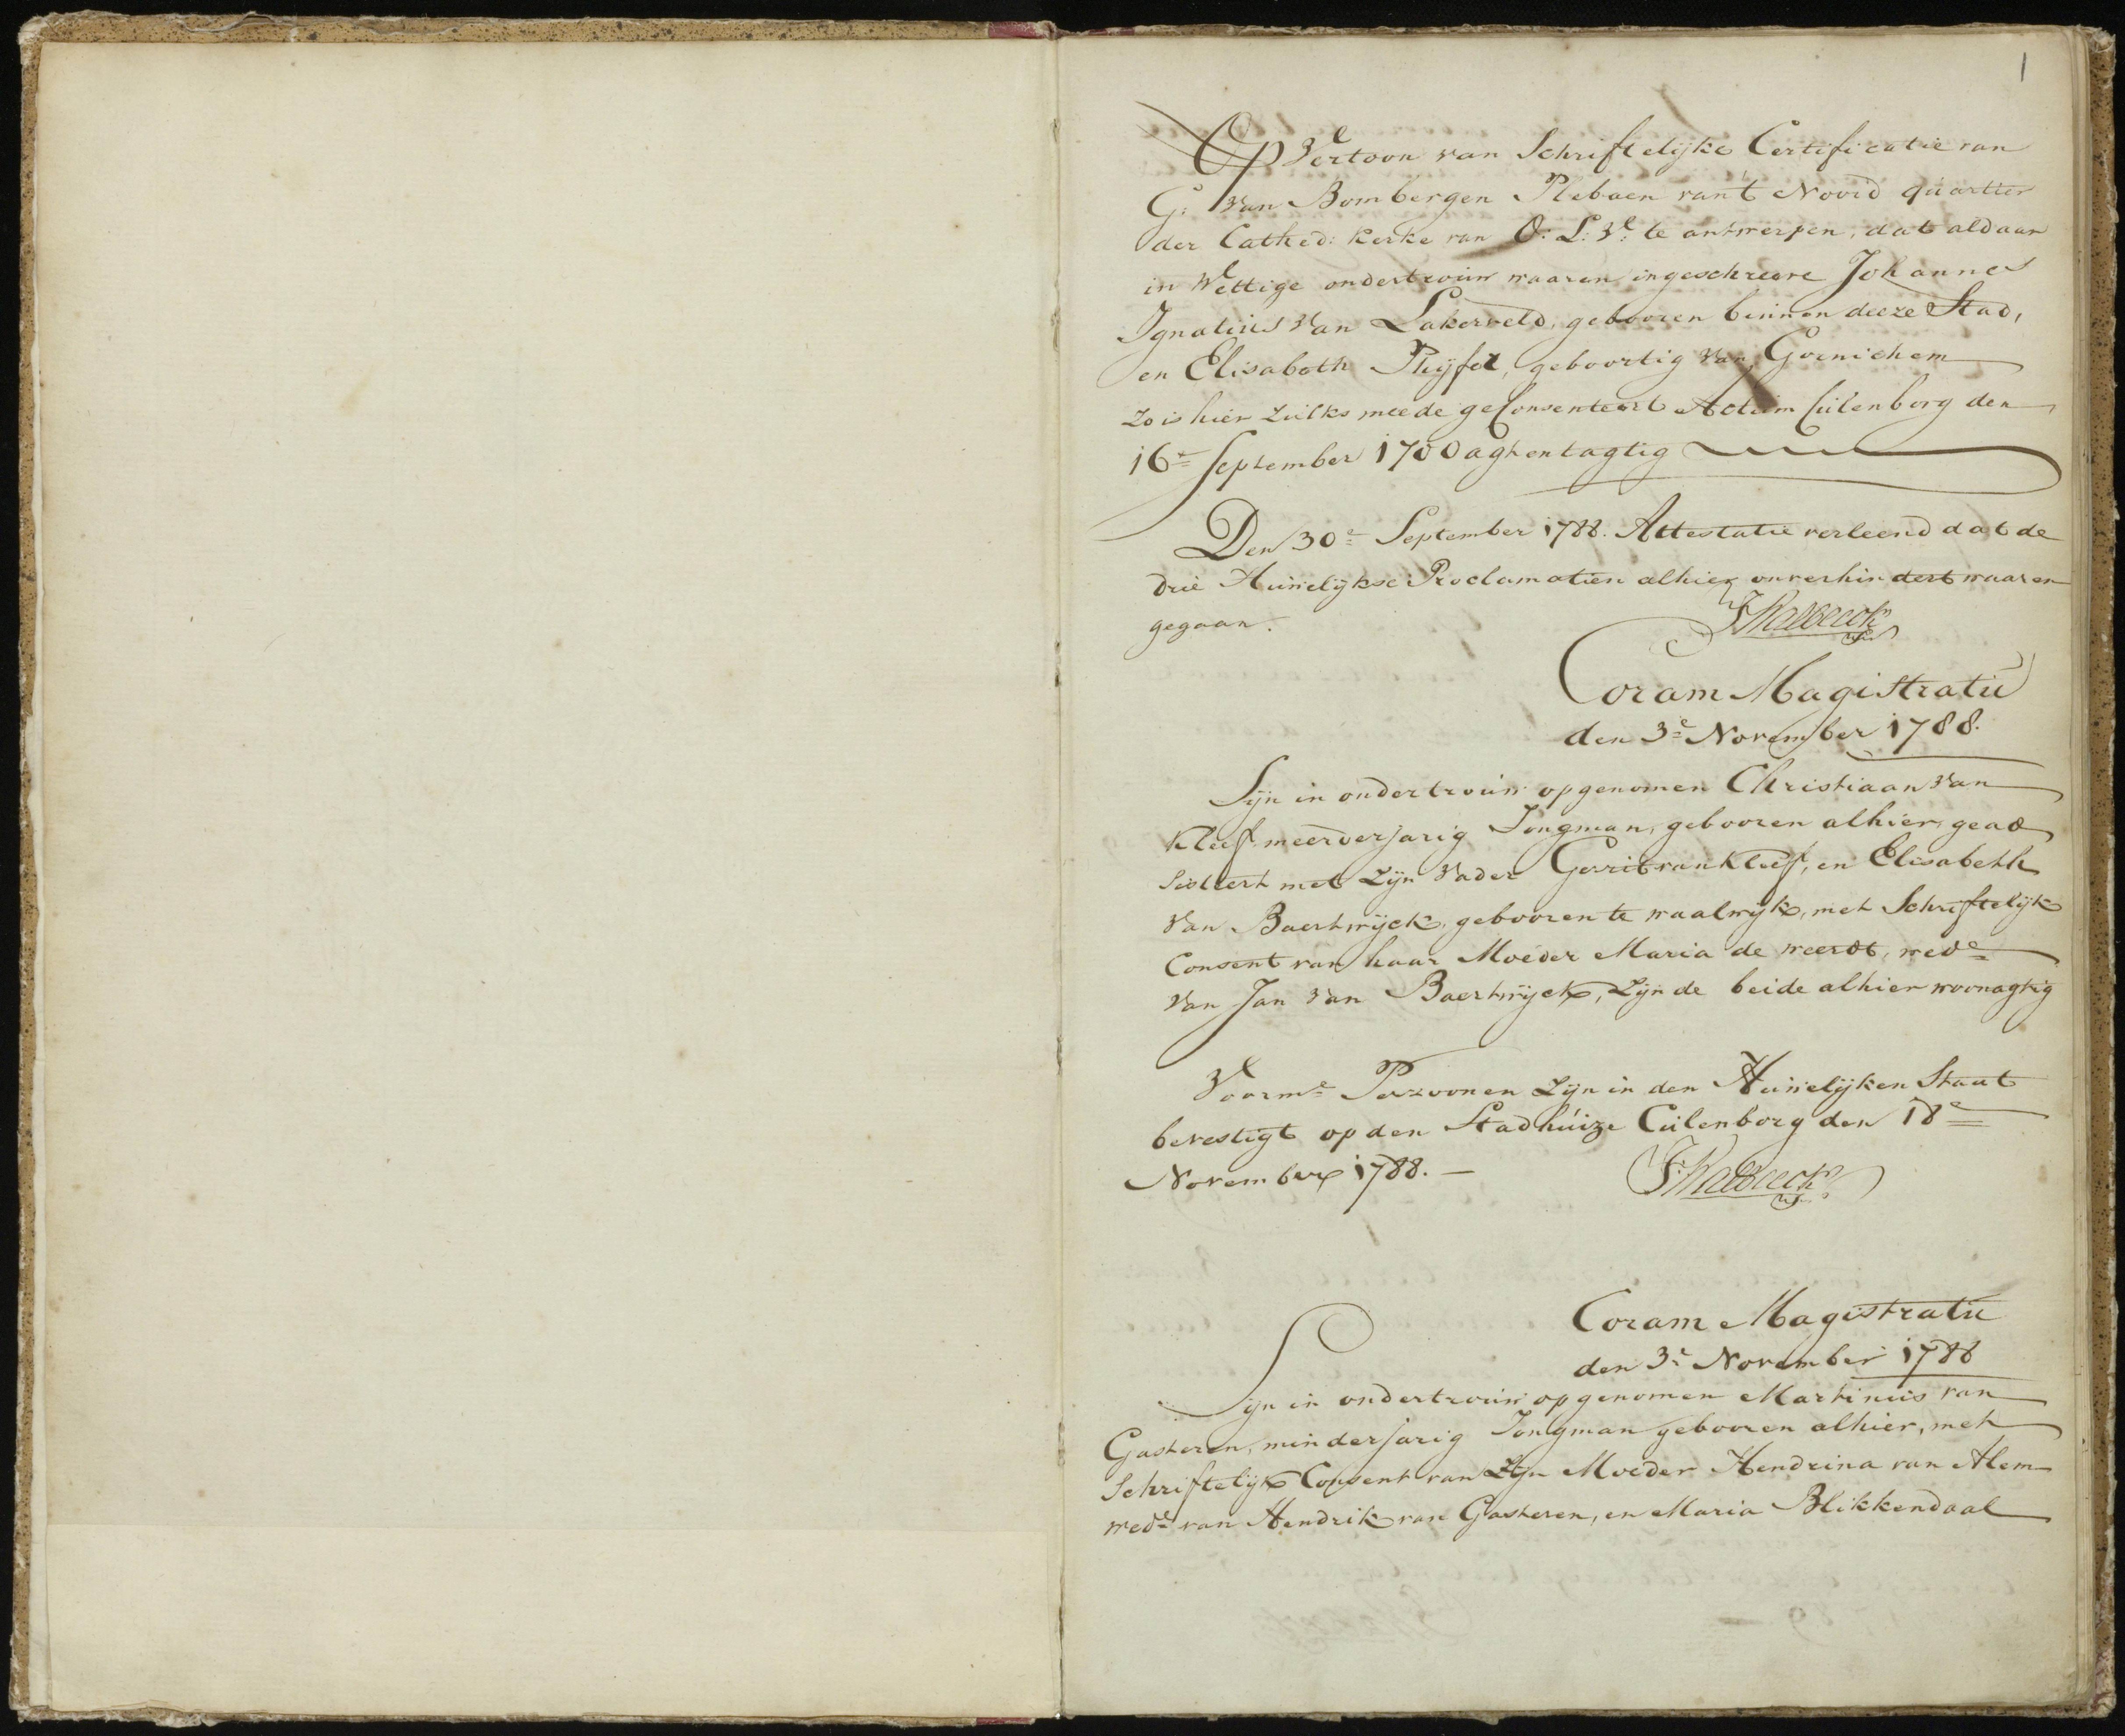 1
Op Vertoon van Schriftelijke Certificatie van
G: van Bombergen Plebaen van't Noord quartier
der Cathed: kerke van O: L: V: te antwerpen, dat aldaar
in Wettige ondertrouw waaren ingeschreeve Johannes
Ignatius van Lakerveld, gebooren binnen deeze Stad,
en Elisabeth, geboortig van Gornichem
zo is hier zulks meede geConsenteert Actum Cuilenborg den
16e September 1700 aghentagtig
Den 30e September 1788. Attestatie verleend dat de
drie Huwelijkse Proclamatien alhier onverhindert waaren
gegaan.
Coram Magistratu
den 3e November 1788.
Sijn in ondertrouw opgenomen Christiaan van
Kleef meerderjarig Jongman, gebooren alhier, gead
sisteert met zijn Vader Gerrit van Kleef, en Elisabeth
van Baertwijck, gebooren te waalwijk, met Schriftelijk
Consent van haar Moeder Maria de weerdt, wede
van Jan van Baertwijck, zijnde beide alhier woonagtig
Voorme Perzoonen zijn in den Huwelijken Staat
bevestigt op den Stadhuize Cuilenborg den 18e
November 1788. —
Coram Magistratu
den 3e November 1788
Sijn in ondertrouw opgenomen Martinus van
Gasteren, minderjarig Jongman gebooren alhier, met
Schriftelijk Consent van zijn Moeder Hendrina van Alem
wede van Hendrik van Gasteren, en Maria Blikkendaal